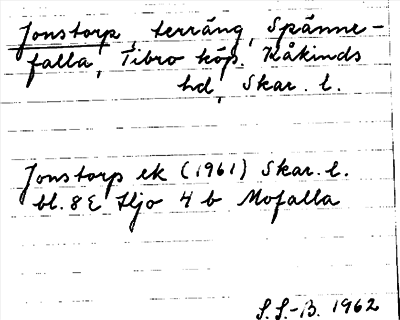 Jonstorp, terräng, Spänne-
falla, Tibro köp. Kåkinds
hd, Skar. l.
Jonstorp ek (1961) Skar. l.
bl. 8E Hjo 4 b Mofalla
S.S.-B. 1962